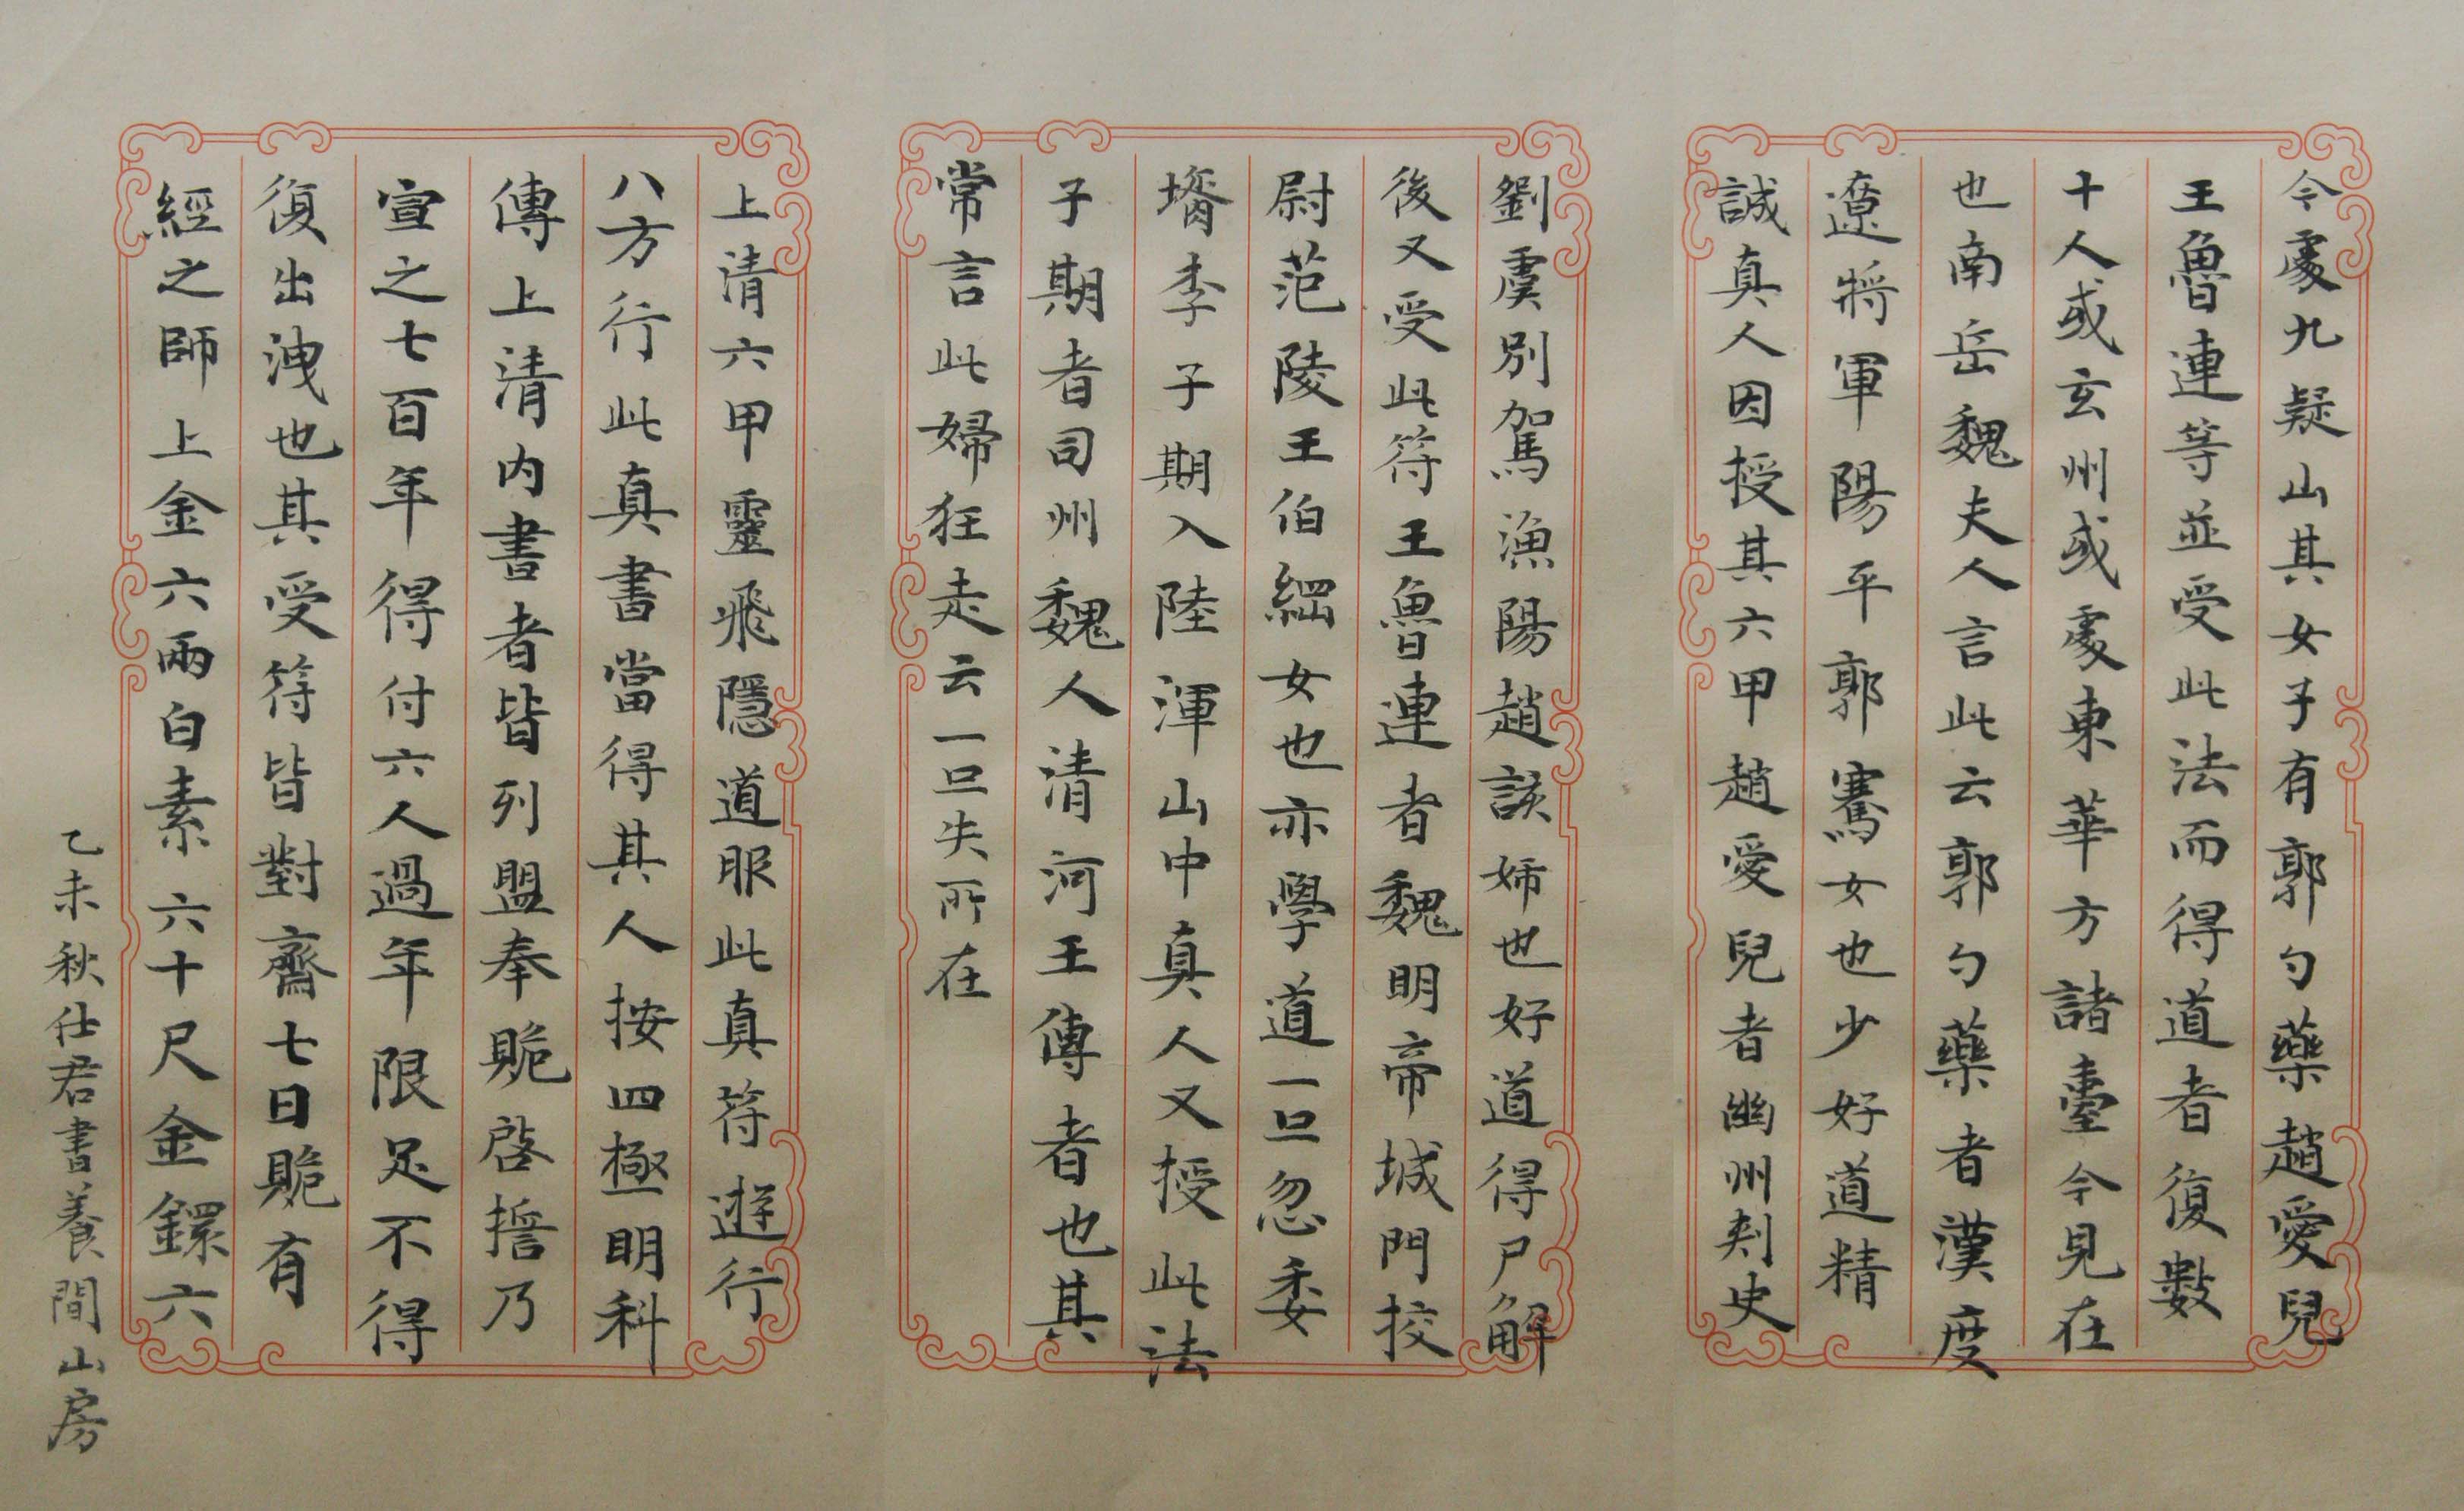 令處九疑山其女子有郭勺藥趙愛兒
王魯連等並受此法而得道者復數
十人或玄州或處東華方諸臺今見在
也南岳魏夫人言此云郭勺藥者漢度
遼將軍陽平郭騫女也少好道精
誠真人因授其六甲趙愛兒者幽州刾史
劉虞別駕漁陽趙該姊也好道得尸解
後又受此符王魯連者魏明帝城門挍
尉范陵王伯綱女也亦學道一旦忽委
壻李子期入陸渾山中真人又授此法
子期者司州魏人清河王傳者也其
常言此婦狂走云一旦失所在
上清六甲靈飛隱道服此真符遊行
八方行此真書當得其人按四極明科
傳上清內書者皆列盟奉贿啓誓乃
宣之七百年得付六人過年限足不得
復出洩也其受符皆對齋七日贿有
經之師上金六兩白素六十尺金鐶六
乙未秋仕君書養閒山房